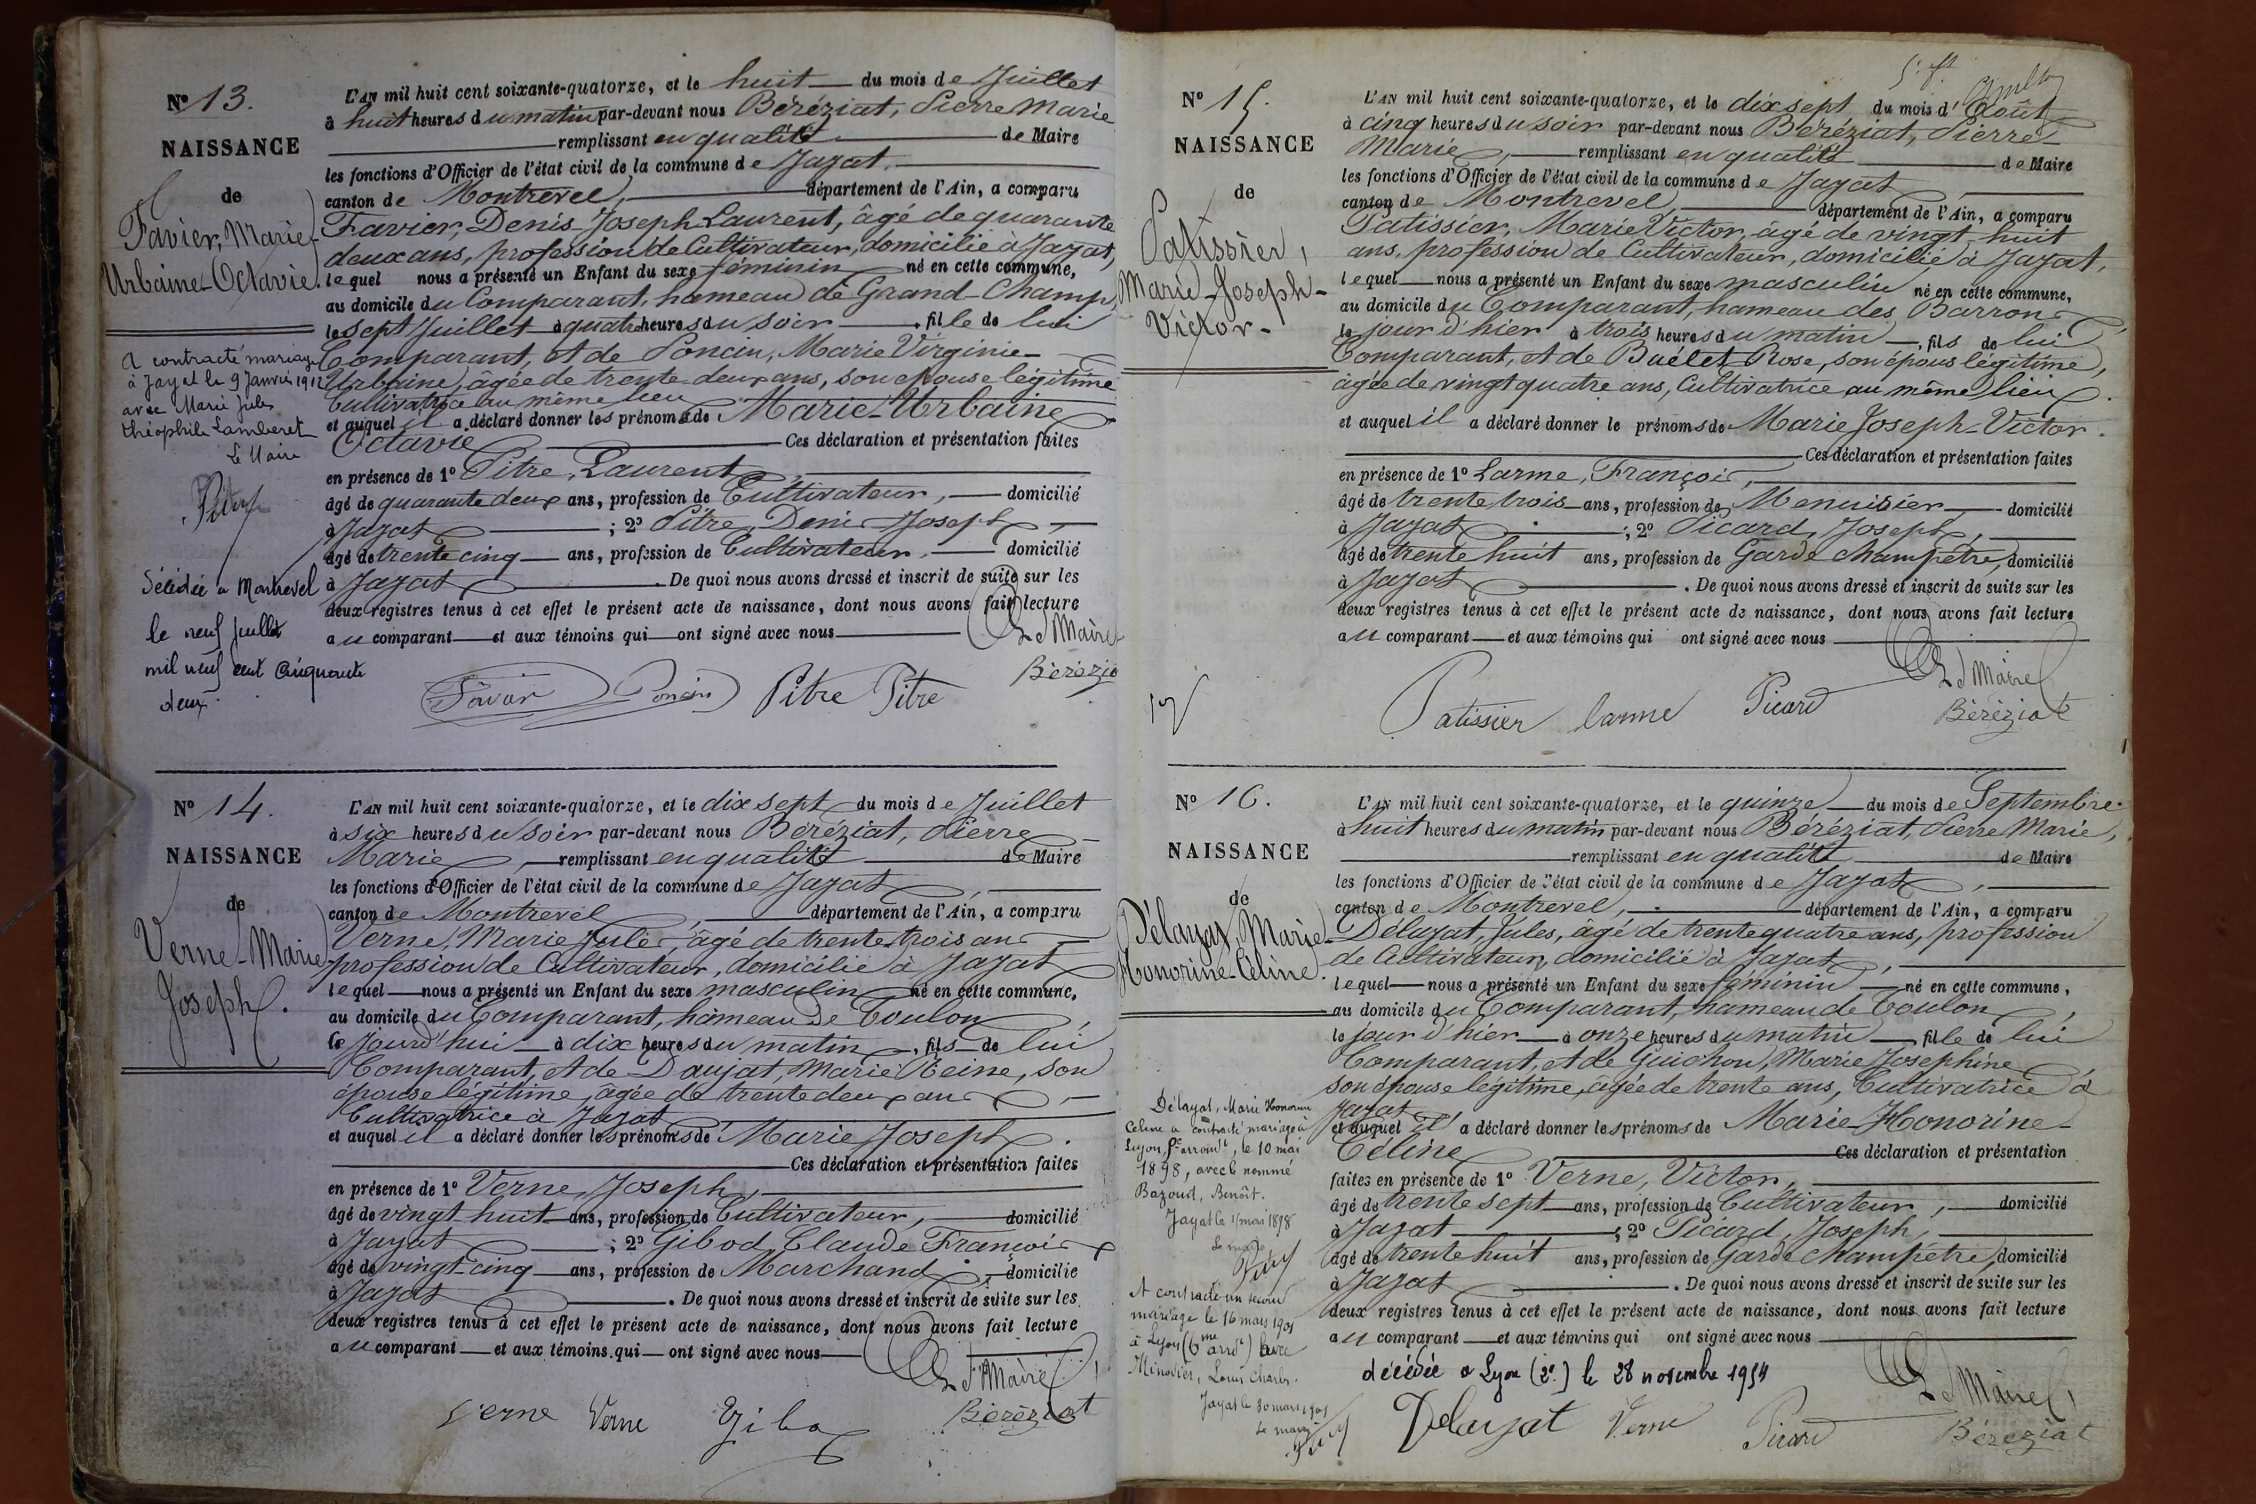 N° 13.
NAISSANCE
de
Favier, Marie-
Urbaine-Octavie.
A contracté mariage
à Jayat le 9 Janvier 1912
avec Marie Jules
théophile Lamberet
Le Maire
Pitre
Décédée à Montrevel
le neuf juillet
mil neuf cent cinquante
deux.
L'AN mil huit cent soixante-quatorze, et le huit du mois de Juillet
à huit heures du matin par-devant nous Béréziat, Pierre Marie
remplissant en qualité de Maire
les fonctions d'Officier de l'état civil de la commune de Jayat
canton de Montrevel, département de l'Ain, a comparu
Favier, Denis-Joseph-Laurent, âgé de quarante
deux ans, profession de Cultivateur, domicilié à Jayat,
lequel nous a présenté un Enfant du sexe féminin né en cette commune,
au domicile du Comparant, hameau de Grand-Champ,
le sept Juillet à quatre heures du soir, fille de lui
Comparant, et de Poncin, Marie Virginie-
Urbaine, âgée de trente deux ans, son épouse légitime
Cultivatrice au même lieu
et auquel il a déclaré donner les prénoms de Marie-Urbaine
Octavie Ces déclaration et présentation faites
en présence de 1° Pitre, Laurent,
âgé de quarante deux ans, profession de Cultivateur, domicilié
à Jayat ; 2° Pitre, Denis Joseph,
âgé de trente cinq ans, profession de Cultivateur, domicilié
à Jayat. De quoi nous avons dressé et inscrit de suite sur les
deux registres tenus à cet effet le présent acte de naissance, dont nous avons fait lecture
au comparant et aux témoins qui ont signé avec nous
Le Maire
Favier Poncin Pitre Pitre Béréziat
N° 14.
NAISSANCE
de
Verne-Marie-
Joseph.
L'AN mil huit cent soixante-quatorze, et le dix sept du mois de Juillet
à six heures du soir par-devant nous Béréziat, Pierre
Marie, remplissant en qualité de Maire
les fonctions d'Officier de l'état civil de la commune de Jayat,
canton de Montrevel, département de l'Ain, a comparu
Verne, Marie Jules, âgé de trente trois ans
profession de Cultivateur, domicilié à Jayat
lequel nous a présenté un Enfant du sexe masculin né en cette commune,
au domicile du Comparant, hameau de Toulon,
le jourd'hui à dix heures du matin, fils de lui
Comparant, et de Daujat, Marie Reine, son
épouse légitime, âgée de trente deux ans,
Cultivatrice à Jayat
et auquel il a déclaré donner les prénoms de Marie Joseph.
Ces déclaration et présentation faites
en présence de 1° Verne, Joseph,
âgé de vingt huit ans, profession de Cultivateur, domicilié
à Jayat ; 2° Gibod Claude François
âgé de vingt-cinq ans, profession de Marchand, domicilié
à Jayat. De quoi nous avons dressé et inscrit de suite sur les
deux registres tenus à cet effet le présent acte de naissance, dont nous avons fait lecture
au comparant et aux témoins qui ont signé avec nous
Le Maire
Verne Verne Gibod Béréziat
N° 15.
NAISSANCE
de
Patissier,
Marie-Joseph-
Victor-
L'AN mil huit cent soixante-quatorze, et le dix sept du mois d'Août
à cinq heures du soir par-devant nous Béréziat, Pierre-
Marie, remplissant en qualité de Maire
les fonctions d'Officier de l'état civil de la commune de Jayat
canton de Montrevel, département de l'Ain, a comparu
Patissier, Marie Victor, âgé de vingt huit
ans, profession de Cultivateur, domicilié à Jayat,
lequel nous a présenté un Enfant du sexe masculin né en cette commune,
au domicile du Comparant, hameau des Barrons,
le jour d'hier à trois heures du matin, fils de lui
Comparant, et de Buélet Rose, son épous légitime,
âgée de vingt quatre ans, Cultivatrice au même lieu.
et auquel il a déclaré donner le prénoms de Marie Joseph-Victor.
Ces déclaration et présentation faites
en présence de 1° Larme, François,
âgé de trente trois ans, profession de Menuisier, domicilié
à Jayat ; 2° Picard, Joseph,
âgé de trente huit ans, profession de Garde champêtre, domicilié
à Jayat. De quoi nous avons dressé et inscrit de suite sur les
deux registres tenus à cet effet le présent acte de naissance, dont nous avons fait lecture
au comparant et aux témoins qui ont signé avec nous
Le Maire
Patissier Larme Picard Béréziat
N° 16.
NAISSANCE
de
Délayat, Marie-
Honorine-Céline.
Délayat, Marie Honorine
Celine a contracté mariage à
Lyon, arrondt, le 10 mai
1898, avec le nommé
Bazoud, Benoît.
Jayat le 11 mai 1898
Le maire
A contracté un second
mariage le 16 mars 1901
à Lyon (6me arrdt) avec
Minodier, Louis Charles.
Jayat le 30 mars 1901
Le maire
L'AN mil huit cent soixante-quatorze, et le quinze du mois de Septembre
à huit heures du matin par-devant nous Béréziat, Pierre Marie,
remplissant en qualité de Maire
les fonctions d'Officier de l'état civil de la commune de Jayat,
canton de Montrevel, département de l'Ain, a comparu
Délayat, Jules, âgé de trente quatre ans, profession
de Cultivateur, domicilié à Jayat,
lequel nous a présenté un Enfant du sexe féminin né en cette commune,
au domicile du Comparant, hameau de Toulon,
le jour d'hier à onze heures du matin, fille de lui
Comparant, et de Guichon, Marie Josephine
son épouse légitime, âgée de trente ans, Cultivatrice à
Jayat
et auquel il a déclaré donner les prénoms de Marie-Honorine-
Céline Ces déclaration et présentation
faites en présence de 1° Verne, Victor,
âgé de trente sept ans, profession de Cultivateur, domicilié
à Jayat ; 2° Picard, Joseph,
âgé de trente huit ans, profession de Garde champêtre, domicilié
à Jayat. De quoi nous avons dressé et inscrit de suite sur les
deux registres tenus à cet effet le présent acte de naissance, dont nous avons fait lecture
au comparant et aux témoins qui ont signé avec nous
décédée à Lyon (2e) le 28 novembre 1954
Le Maire
Delayat Verne Picard Béréziat